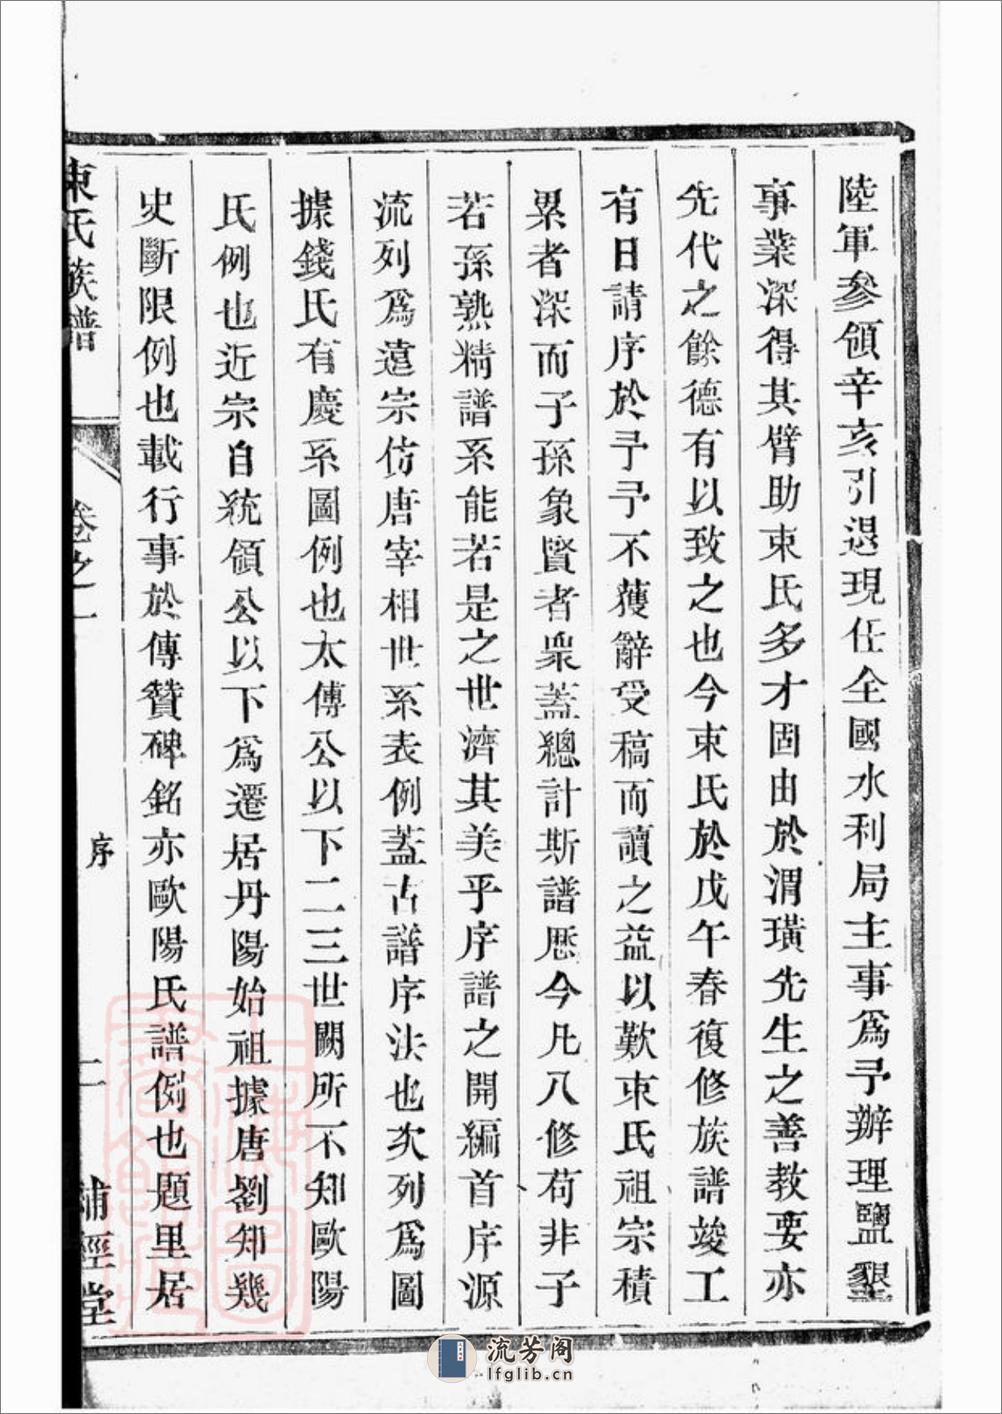 陸軍參領辛亥引退現任全國水利局主事爲予辦理鹽墾
事業深得其臂助束氏多才固由於渭璜先生之善教要亦
先代之餘德有以致之也今束氏於戊午春復修族譜竣工
有日請序於予予不獲辭受稿而讀之益以歎束氏祖宗積
累者深而子孫象賢者衆蓋總計斯譜歷今凡八修苟非子
若孫熟精譜系能若是之世濟其美乎序譜之開編首序源
流列爲遠宗仿唐宰相世系表例蓋古譜序法也次列爲圖
據錢氏有慶系圖例也太傅公以下二三世闕所不知歐陽
氏例也近宗自統領公以下爲遷居丹陽始祖據唐劉知幾
史斷限例也載行事於傳贊碑銘亦歐陽氏譜例也題里居
束氏族譜
卷之一
序
二
補經堂
流芳阁
lfglib.cn